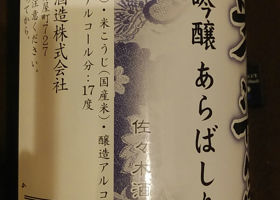 吟醸 あらばしり
佐々木酒
・米こうじ(国産米)・醸造アルコ
アルコール分:17度
酒造株式会社
屋町727
注意ください。
てから、